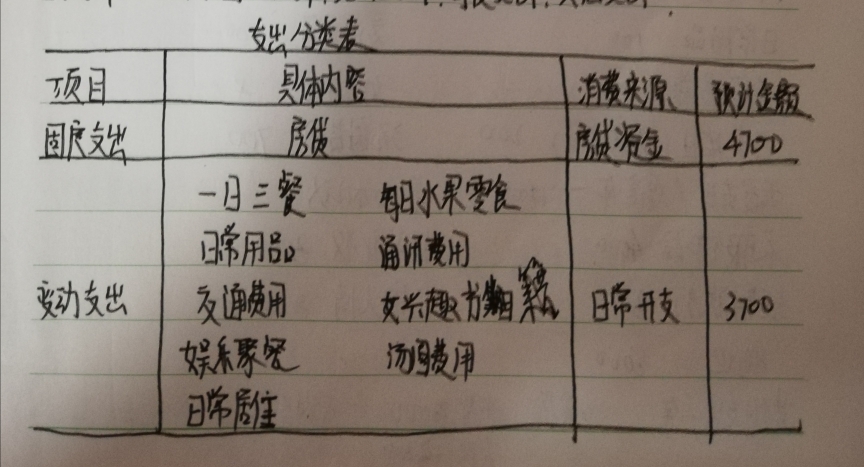 支出分类表
项目 具体内容 消费来源 预计金额
固定支出 房贷 房贷资金 4700
一日三餐 每日水果零食
日常用品 通讯费用
变动支出 交通费用 女兴趣 书籍 日常开支 3700
娱乐聚餐 费用
日常居住